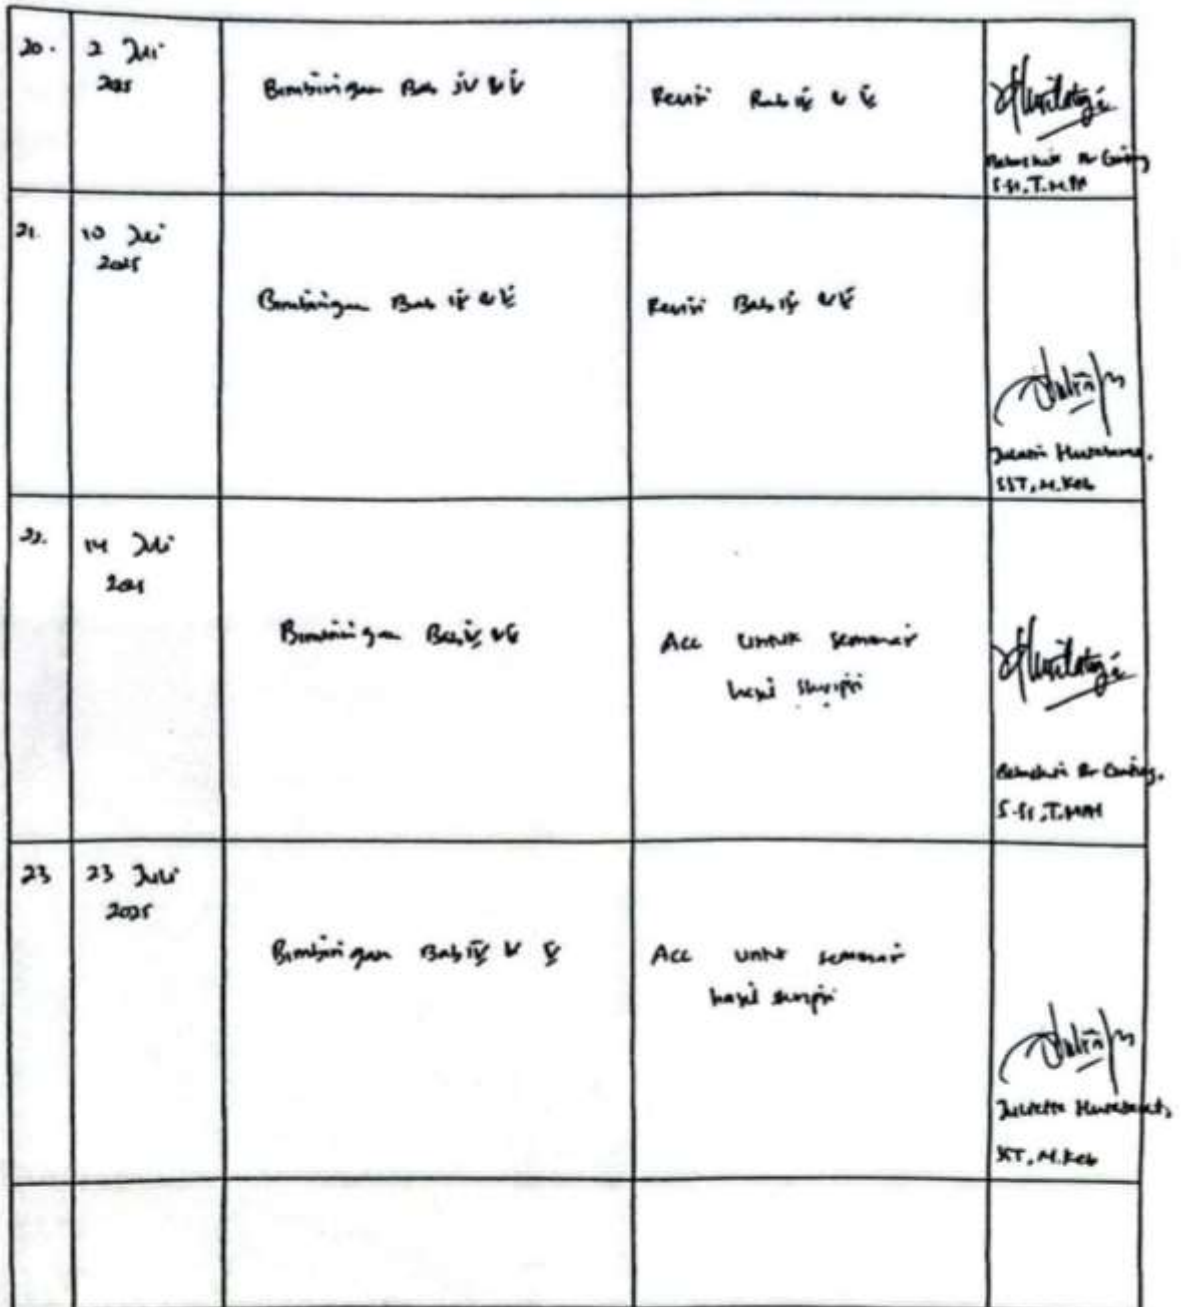 20.
2 Juli
2025
Bimbingan Bab IV & V
Revisi Bab IV & V
21.
10 Juli
2025
Bimbingan Bab IV & V
Revisi Bab IV & V
SST, M.Keb
22.
14 Juli
2025
Bimbingan Bab IV & V
Acc untuk seminar
hasil skripsi
23
23 Juli
2025
Bimbingan Bab IV & V
Acc untuk seminar
hasil skripsi
Juliette Hutabarat,
SST, M.Keb